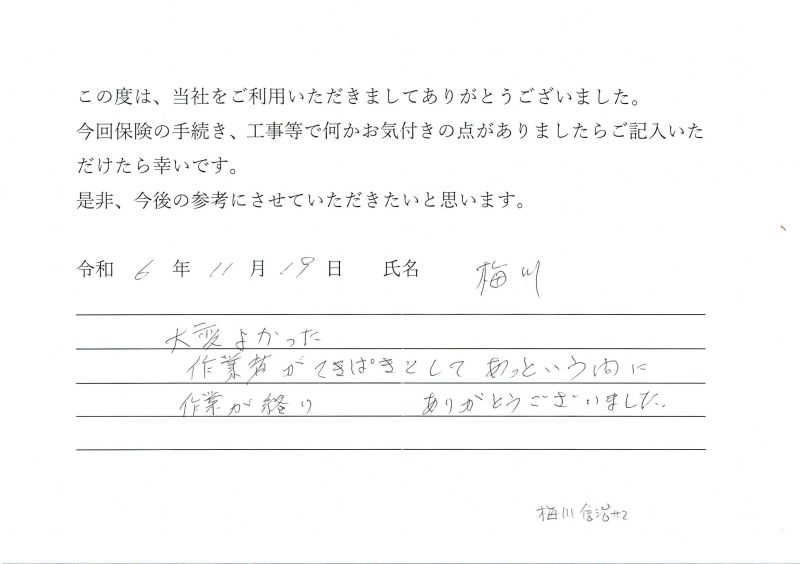 この度は、当社をご利用いただきましてありがとうございました。
今回保険の手続き、工事等で何かお気付きの点がありましたらご記入いた
だけたら幸いです。
是非、今後の参考にさせていただきたいと思います。
令和 6 年 11 月 19 日 氏名 梅川
大変よかった
作業者がてきぱきとして あっという間に
作業が終り ありがとうございました。
梅川 信